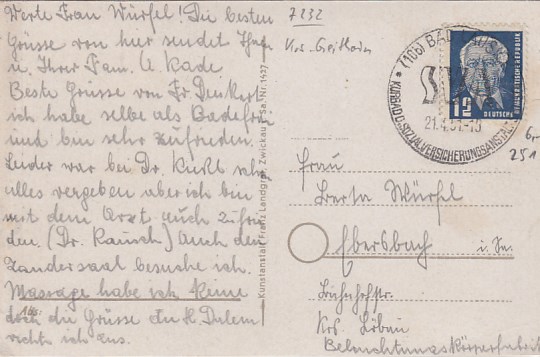 Werte Frau Würfel! Die besten
Grüsse von hier sendet
u. Ihrer Fam. A. Kade
Beste Grüsse von Fr. Denkert
ich habe selbe als Badefrau
und bin sehr zufrieden.
Leider war bei Dr. schon
alles vergeben aber ich bin
mit dem Arzt auch zufrie
den. (Dr. Rausch) Auch den
Zandersaal besuche ich.
Massage habe ich keine
doch die Grüsse an H.
richte ich aus.
Kunstanstalt Franz Landgraf, Zwickau i. Sa. Nr. 1427
7232
Krs. Geithain
(10b) BAD
21.4.51-15
KURBAD D. SOZIALVERSICHERUNGSANSTALT
12
DEUTSCHE DEMOKRATISCHE REPUBLIK
251
Frau
Berta Würfel
Ebersbach i. Sa.
Bahnhofstr.
Krs. Löbau
Beleuchtungskörperfabrik